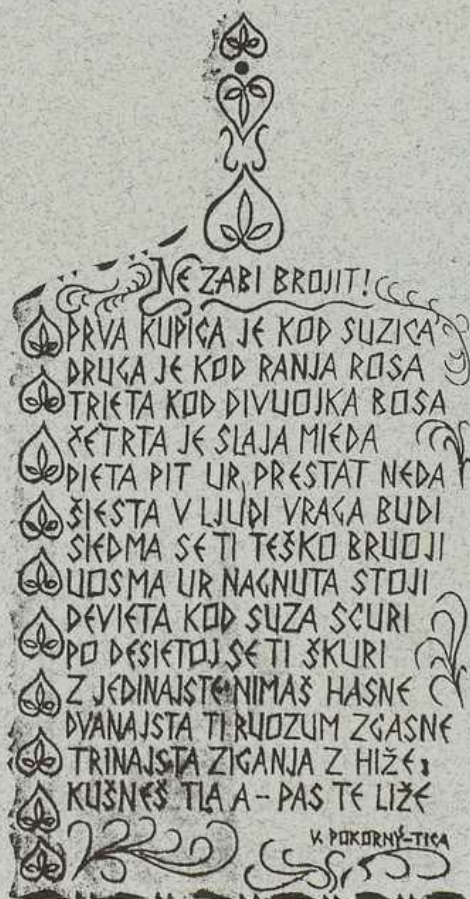 NE ZABI BROJIT!
PRVA KUPICA JE KOD SUZICA
DRUGA JE KOD RANJA ROSA
TRIETA KOD DIVUOJKA BOSA
ČETRTA JE SLAJA MIEDA
PIETA PIT UR PRESTAT NEDA
ŠIESTA V LJUDI VRAGA BUDI
SIEDMA SE TI TEŠKO BRUOJI
UOSMA UR NAGNUTA STOJI
DEVIETA KOD SUZA SCURI
PO DESIETOJ SE TI ŠKURI
Z JEDINAJSTE NIMAŠ HASNE
DVANAJSTA TI RUOZUM ZGASNE
TRINAJSTA ZIGANJA Z HIŽE;
KUŠNEŠ TLA A - PAS TE LIŽE
V. POKORNÝ-TICA